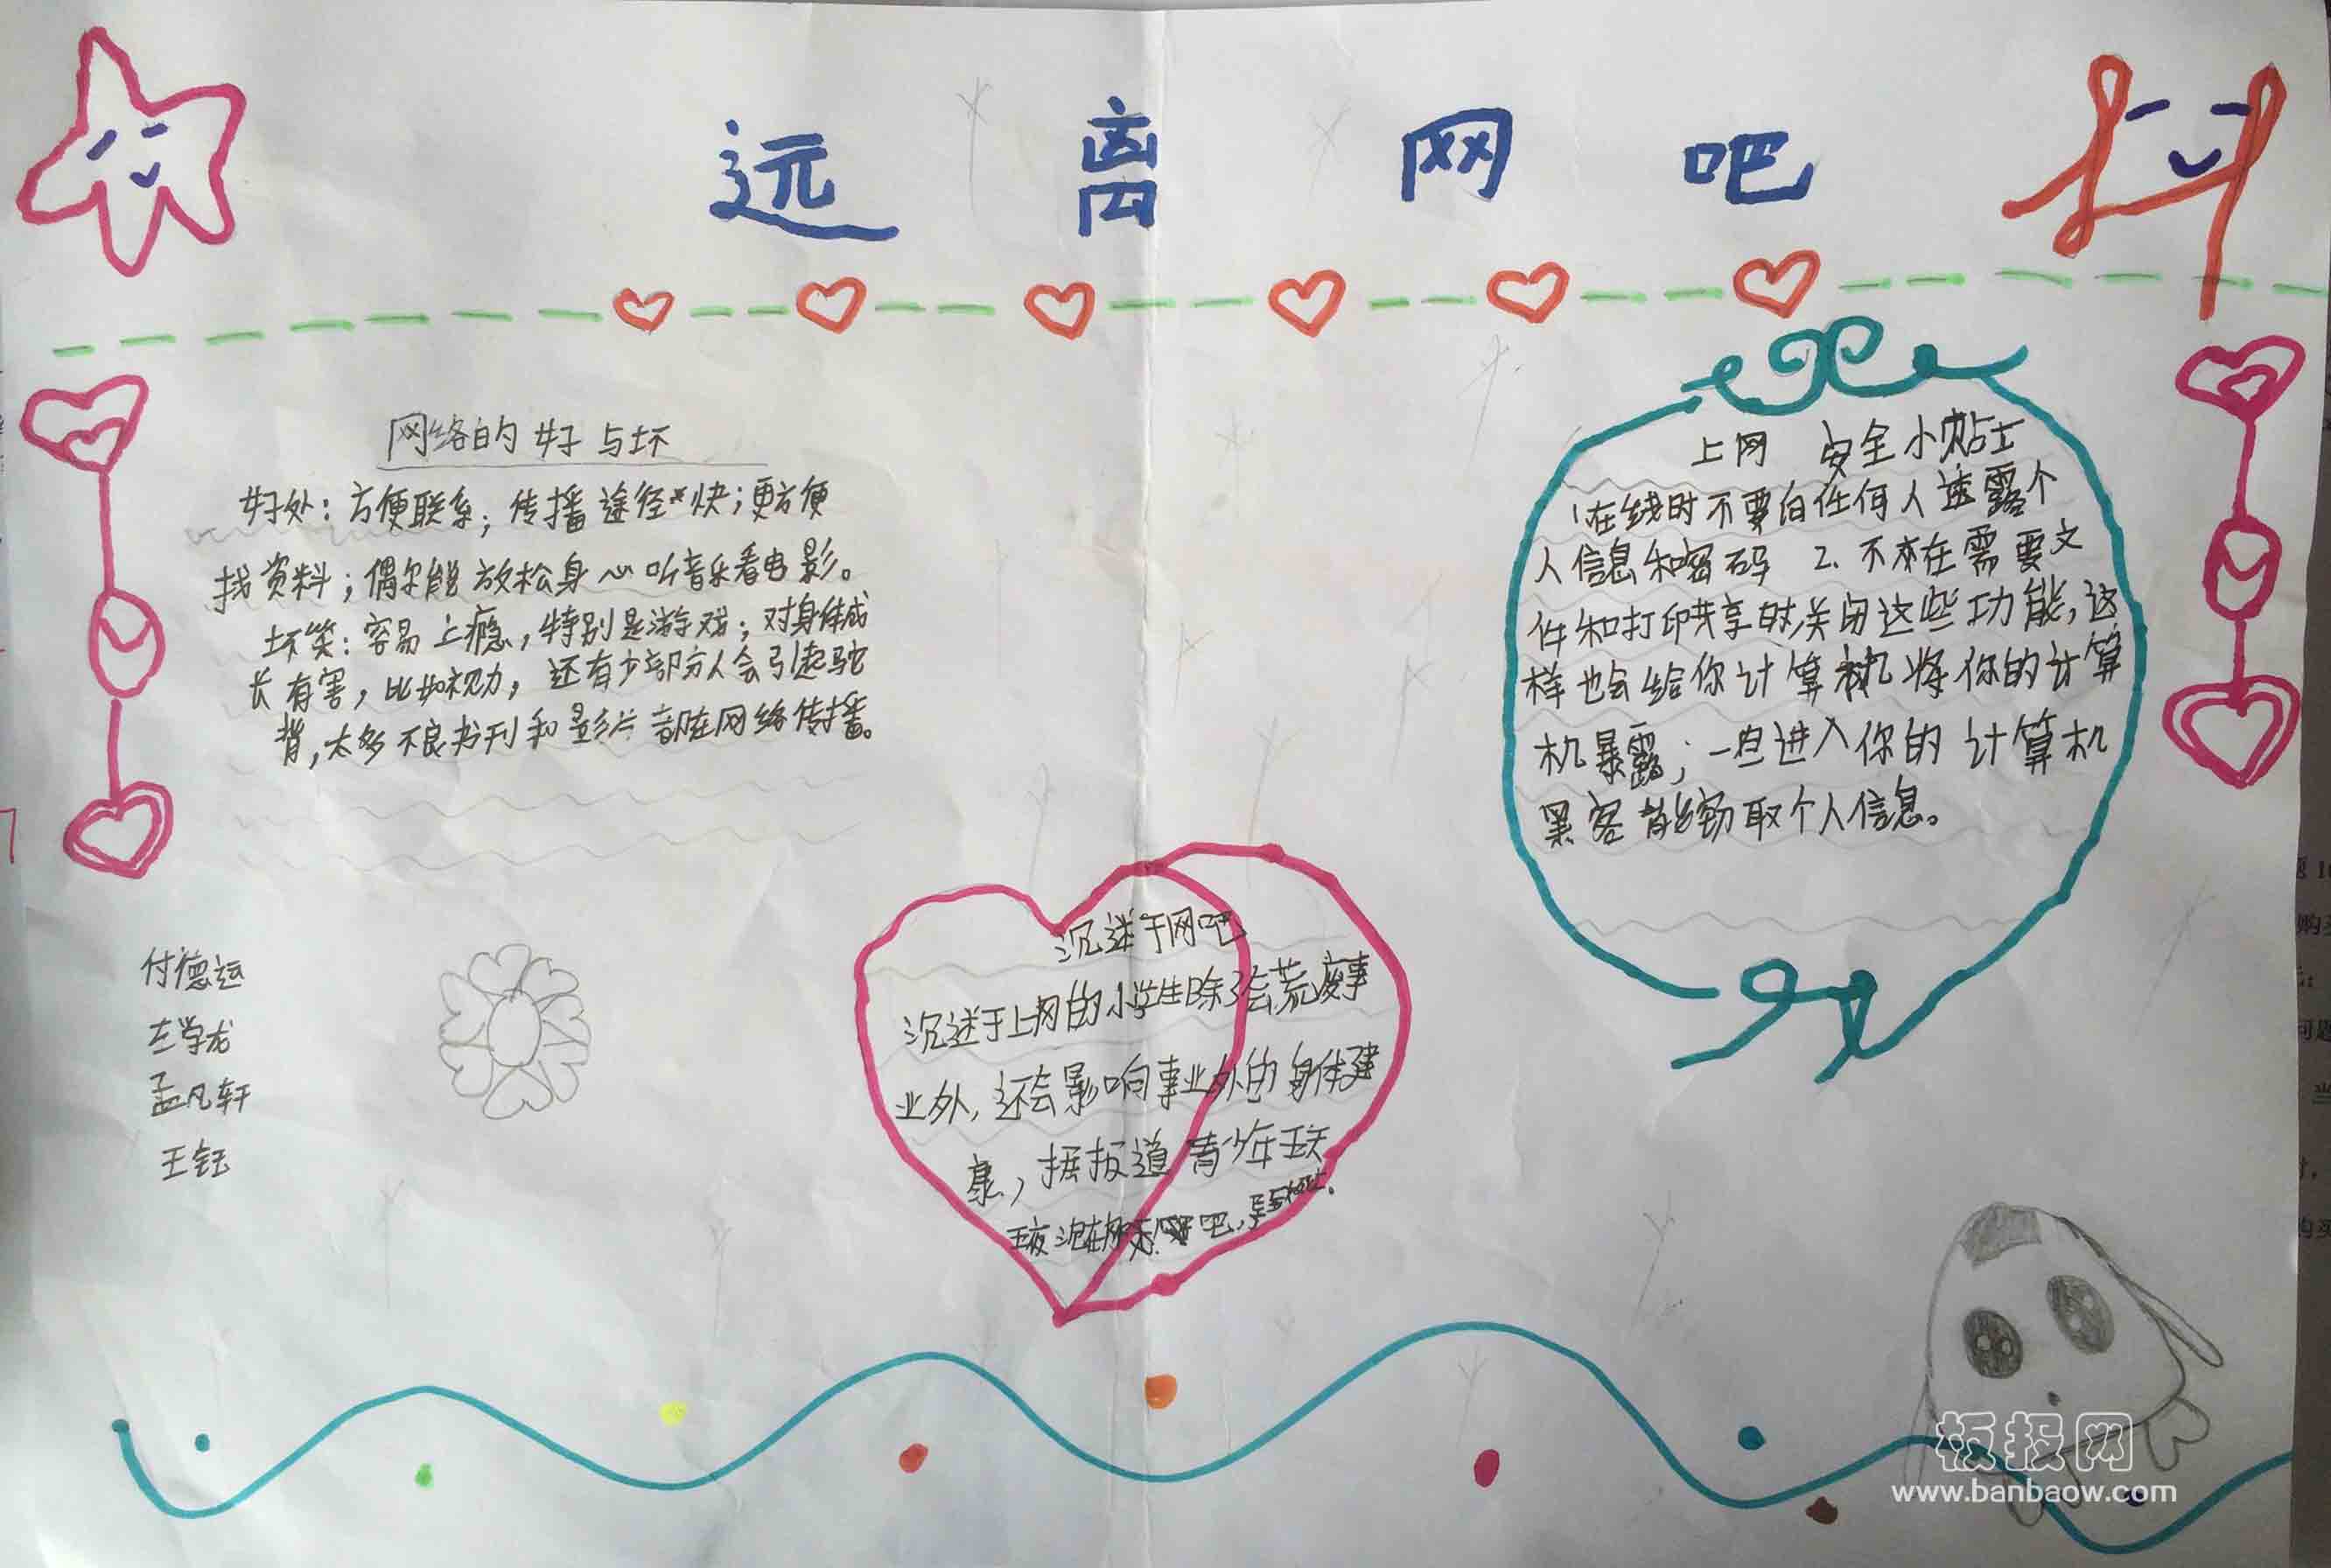 远离网吧
网络的好与坏
好处：方便联系；传播途径快；更方便
找资料；偶尔能放松身心听音乐看电影。
坏笑：容易上瘾，特别是游戏；对身体成
长有害，比如视力，还有少部分人会引起驼
背，太多不良书刊和影片都在网络传播。
上网 安全小贴士
1在线时不要向任何人透露个
人信息和密码 2.不在需要文
件和打印共享时关闭这些功能，这
样也会给你计算机将你的计算
机暴露；一旦进入你的计算机
黑客能窃取个人信息。
沉迷于网吧
沉迷于上网的小学生除了会荒废事
业外，还会影响事业外的身体健
康，据报道青少年五天
五夜沉在网吧，
付德运
左学龙
孟凡轩
王钰
板报网
www.banbaow.com